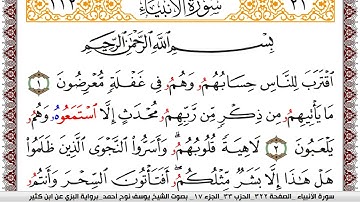 ١١٢ سُورَةُ الأَنْبِيَاءِ ٢١
بِسْمِ اللَّهِ الرَّحْمَٰنِ الرَّحِيمِ
اقْتَرَبَ لِلنَّاسِ حِسَابُهُمُۥ وَهُمُۥ فِي غَفْلَةٍ مُّعْرِضُونَ ١
مَا يَأْتِيهِمُۥ مِن ذِكْرٍ مِّن رَّبِّهِمُۥ مُحْدَثٍ إِلَّا اسْتَمَعُوهُۥ وَهُمُۥ
يَلْعَبُونَ ٢ لَاهِيَةً قُلُوبُهُمُۥ وَأَسَرُّوا النَّجْوَى الَّذِينَ ظَلَمُوا
هَلْ هَٰذَا إِلَّا بَشَرٌ مِّثْلُكُمُۥ أَفَتَأْتُونَ السِّحْرَ وَأَنتُمُۥ
سورة الأنبياء _ الصفحة ٣٢٢_ الحزب ٣٣_ الجزء ١٧_ بصوت الشيخ يوسف نوح أحمد _برواية البزي عن ابن كثير